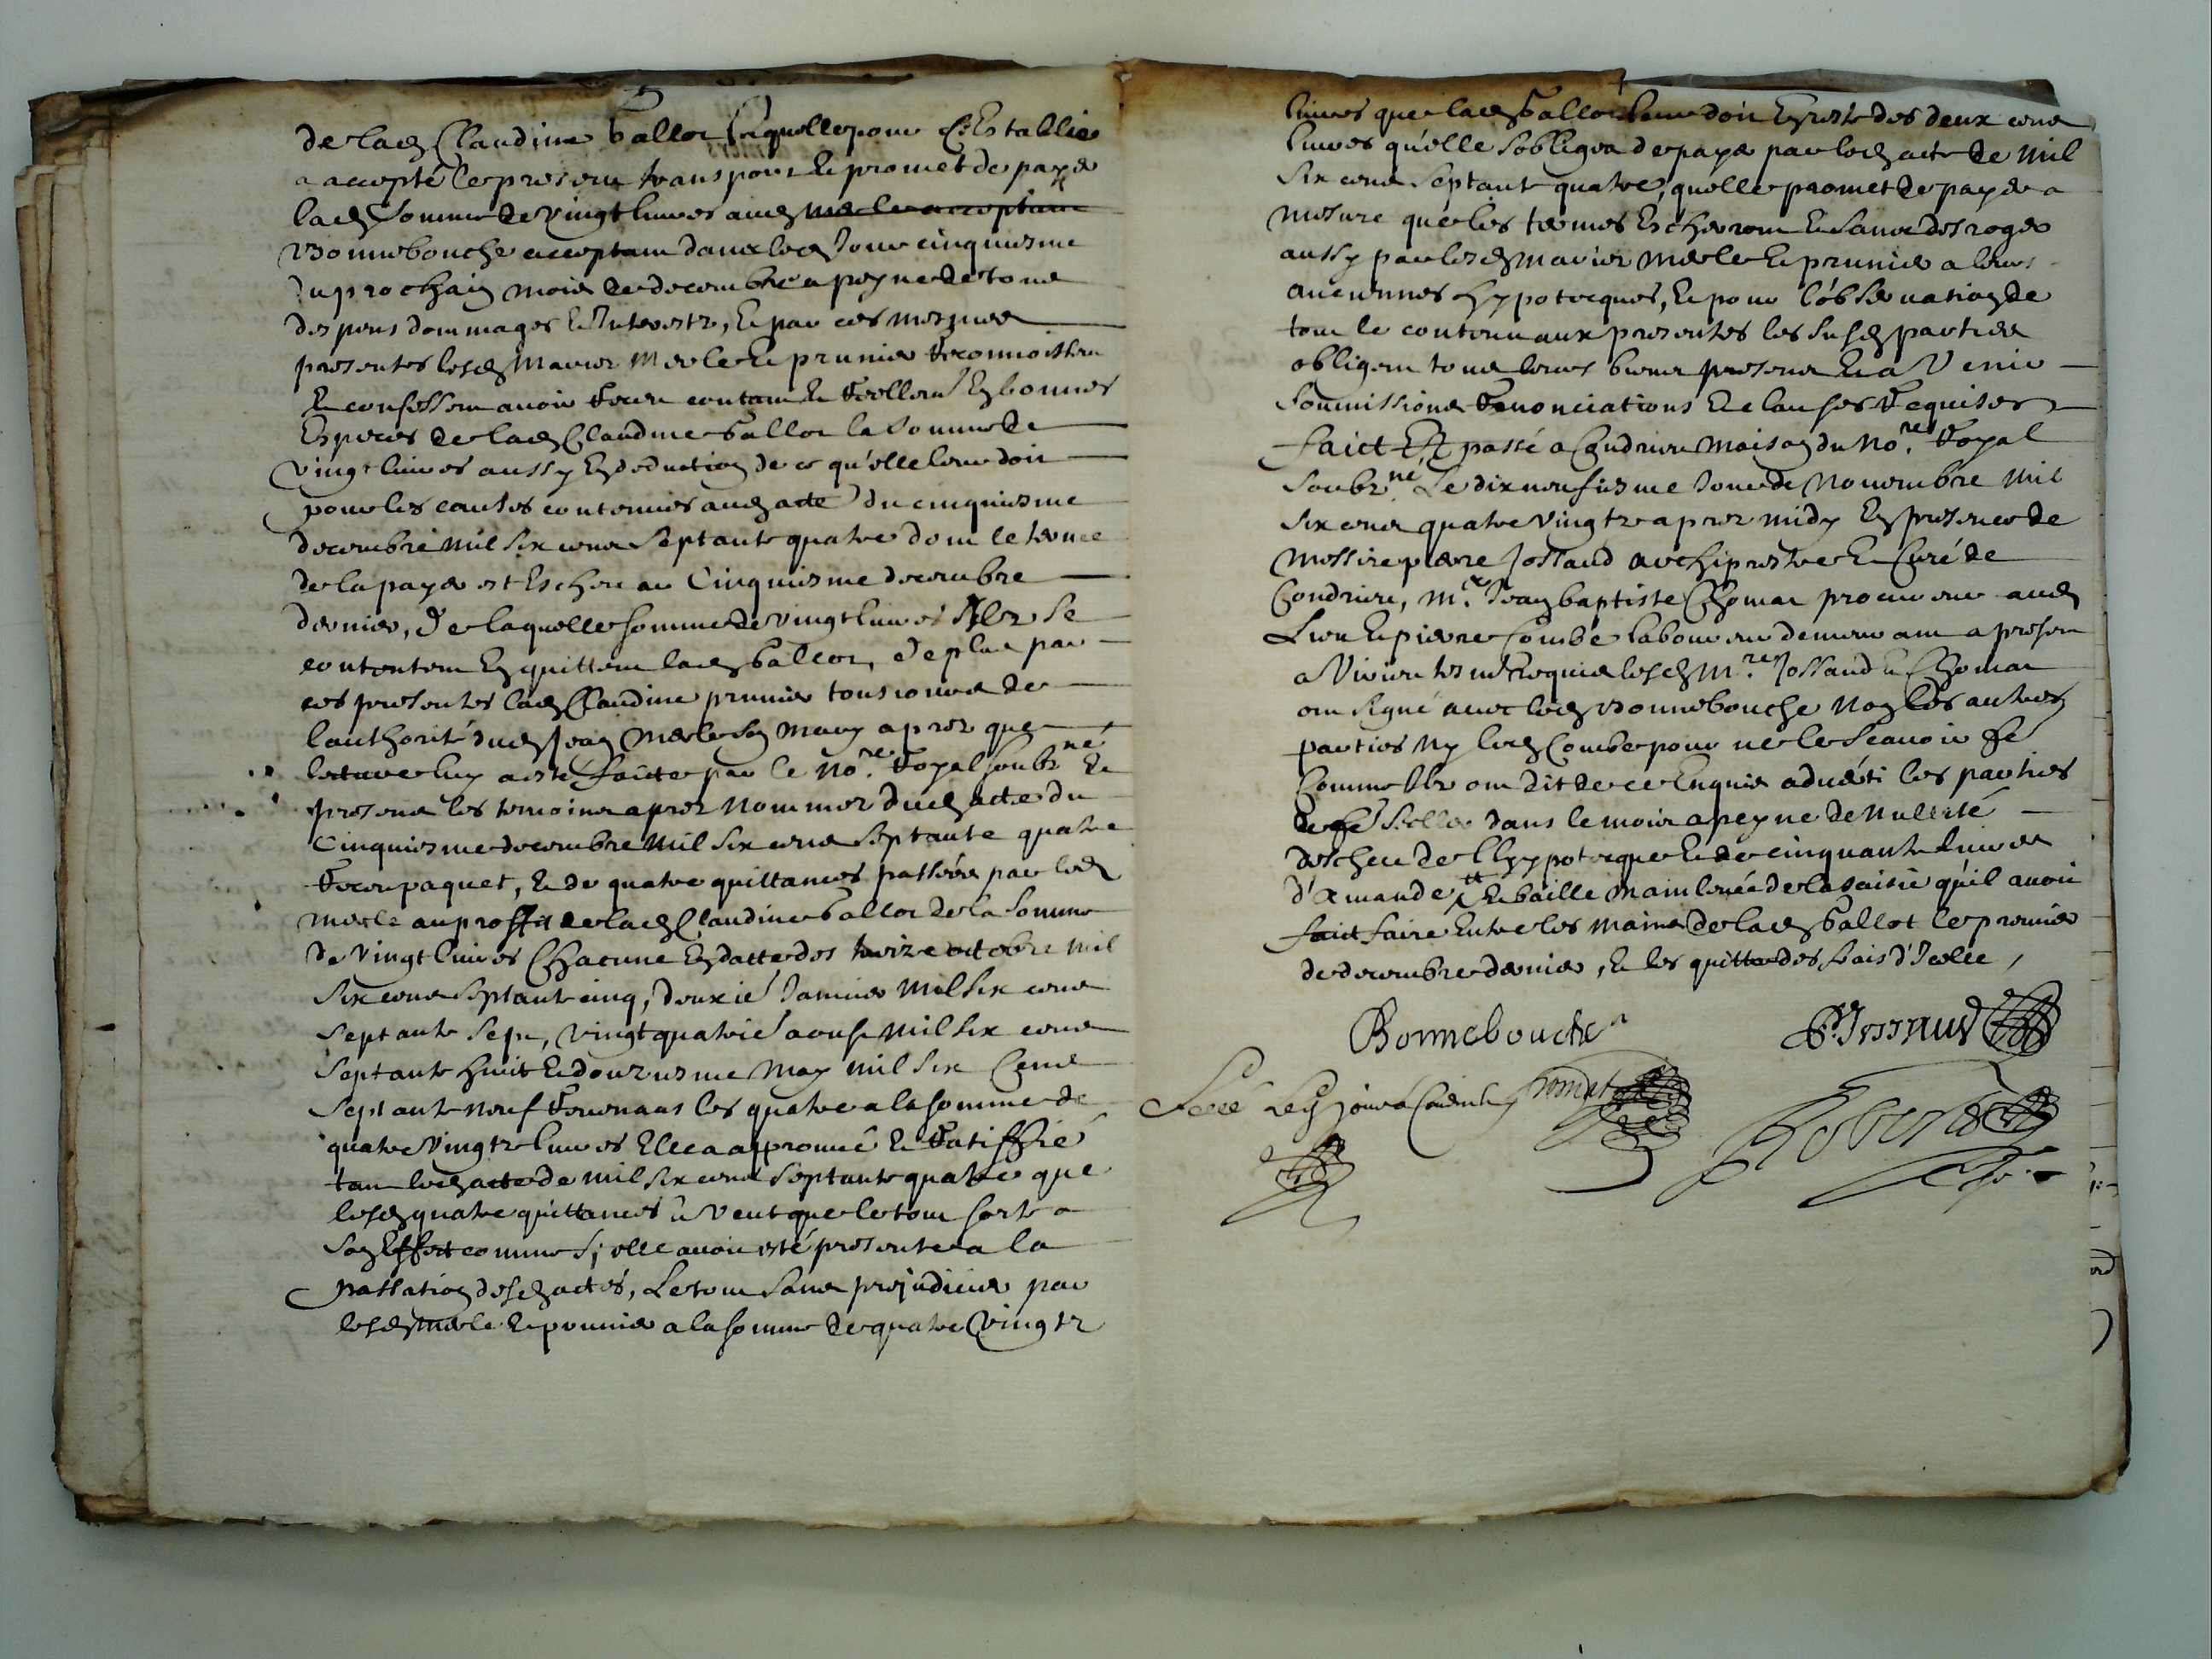 de lad Claudine Ballot laquelle pour ce Establie
a accepté le present transport & promet de payer
lad somme de vingt livres aud merle acceptant
Bonnebouche acceptant dans led Jour cinquiesme
du prochain mois de decembre a peyne de tous
despens dommages & Interestz, & par ces mesmes
presentes lesd Mavier Merle & prunier Reconnoissent
& confessent avoir Receu contant & Reellemt En bonnes
Especes de lad Claudine Ballot la somme de
vingt livres aussy En deduction de ce qu'elle leur doit
pour les causes contenues aud acte du cinquiesme
decembre mil six cens septante quatre dont le terme
de la paye est Escheu au Cinquiesme decembre
dernier, de laquelle somme de vingt livres Ilz se
contentent En quittent lad Ballot, de plus par
ces presentes lad Claudine prunier tousiours de
l'authorité dud Jean Merle son mary apres que
lecture luy a esté faicte par le Nore Royal soubzné &
presens les temoins apres nommez dud acte du
Cinquiesme decembre mil six cens septante quatre
Receu paquet, & de quatre quittances passées par led
merle au proffit de lad Claudine Ballot de la somme
de vingt livres Chacune En datte des treize octobre mil
six cens septante cinq, deuxié Janvier mil six cens
septante sept, vingt quatrié aoust mil six cens
septante huit & douziesme May mil six Cens
septante neuf Revenans les quatre a la somme de
quatre vingtz livres Elle a approuvé & Ratiffié
tant led acte de mil six cens septante quatre que
lesd quatre quittances & veut que le tout sorte a
son Effect comme si elle avoit esté presente a la
passation desd actes, Le tout sans prejudicier par
lesd merle & prunier a la somme de quatre vingtz
livres que lad Ballot leur doit En reste des deux cens
livres qu'elle s'obligea de payer par led acte de mil
six cens septante quatre, qu'elle promet de payer a
mesure que les termes Escherront & sans desroger
aussy par lesd Mavier Merle & prunier a leurs
anciennes hypotecques, & pour l'observation de
tout le contenu aux presentes les susd parties
obligent tous leurs biens presens & a Venir
soumissions Renonciations & clauses Requises
faict Et passé a Condrieu maison du Nore Royal
soubzné Le dix neufiesme Jour de Novembre mil
six cens quatre vingtz apres midy En presence de
Messire pierre Jossand archiprestre & Curé de
Condrieu, Me Jean baptiste Chomat procureur aud
Lieu & pierre Combe laboureur demeurant a present
a Virieu tesm Requis lesd Mre Jossand & Chomat
ont signé avec led Bonnebouche Non les autres
parties Ny led Combe pour ne le sçavoir fé
Comme Ilz ont dit de ce Enquis adverti les parties
de fé seeller dans le mois a peyne de nullité
descheu de l'hypotecque & de cinquante livres
d'amande, & baille mainlevée de la saisie qu'il avoit
faict faire Entre les mains de lad Ballot le premier
de decembre dernier, & les quitte des frais d'Icelle,
Bonnebouche P. Jossand
Seelé Led jour a Condrieu Chomat